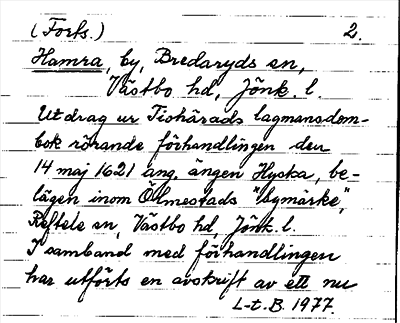 (Forts.) 2.
Hamra, by, Bredaryds sn,
Västbo hd, Jönk. l.
Utdrag ur Tiohärads lagmansdom-
bok rörande förhandlingen den
14 maj 1621 ang. ängen Hyska, be-
lägen inom Ölmestads "bymärke",
Reftele sn, Västbo hd, Jönk. l.
I samband med förhandlingen
har utförts en avskrift av ett nu
L-t. B. 1977.